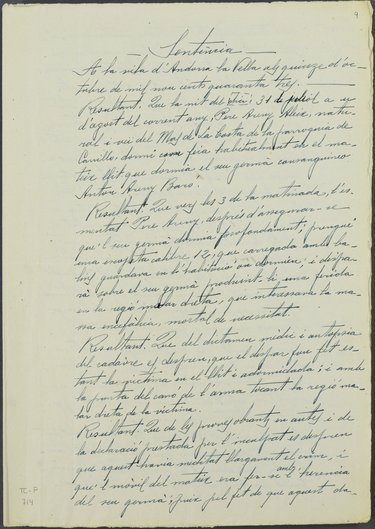 9
Sentència
A la vila d'Andorra la Vella als quinze d'oc-
tubre de mil nou cents quaranta tres.
Resultant. Que la nit del 31 de juliol a u
d'agost del corrent any, Pere Areny Aleix, natu-
ral i veí del Mas de La Costa de la parroquia de
Canillo, dormí com feia habitualment en el ma-
teix llit que dormia el seu germà consanguineo
Anton Areny Baró.
Resultant. Que vers les 3 de la matinada, l'es-
mentat Pere Areny, després d'assegurar-se
que'l seu germà dormia profondament, prengué
una escopeta calibre 12, que carregada amb ba-
lins guardava en l'habitació on dormien, i dispa-
rà sobre el seu germà produint-li una ferida
en la regió malar dreta, que interessava la ma-
sa encefàlica, mortal de necessitat.
Resultant. Que del dictamen mèdic i autopsia
del cadavre es despren, que el dispar fou fet es-
tant la víctima en el llit i adormida; i amb
la punta del canó de l'arma tocant la regió ma-
lar dreta de la víctima.
Resultant. Que de les proves obrants en autes i de
la declaració prestada per l'inculpat es despren
que aquest havia meditat llargament el crim, i
que'l mòvil del mateix era fer-se amb l'herencia
del seu germà; puix pel fet de que aquest
TC-P
714